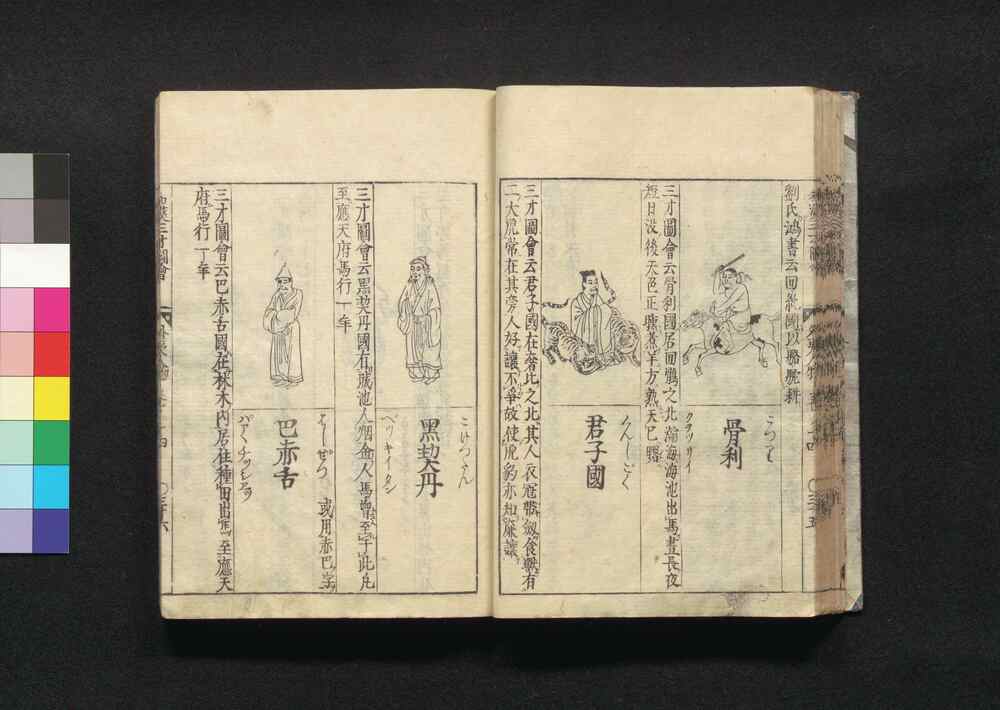 劉氏鴻書云回紇國以駱駝耕
骨利
こつり
クウツリイ
三才圖會云骨利國居回鶻之北瀚海海池出馬晝長夜
短日没後天色正曛煮羊方熟天已曙
君子國
くんしごく
三才圖會云君子國在奢比之北其人衣冠帶劔食獸有
二大虎常在其旁人好讓不爭故使虎豹亦知廉讓
黑契丹
こけつたん
ヘツキイタン
三才圖會云黑契丹國有城池人烟金人馬曽至于此凡
至應天府馬行一年
巴赤舌
はしせつ
或用赤巴字
三才圖會云巴赤吉國在林木内居住種田出馬至應天
府馬行一年
和漢三才圖會